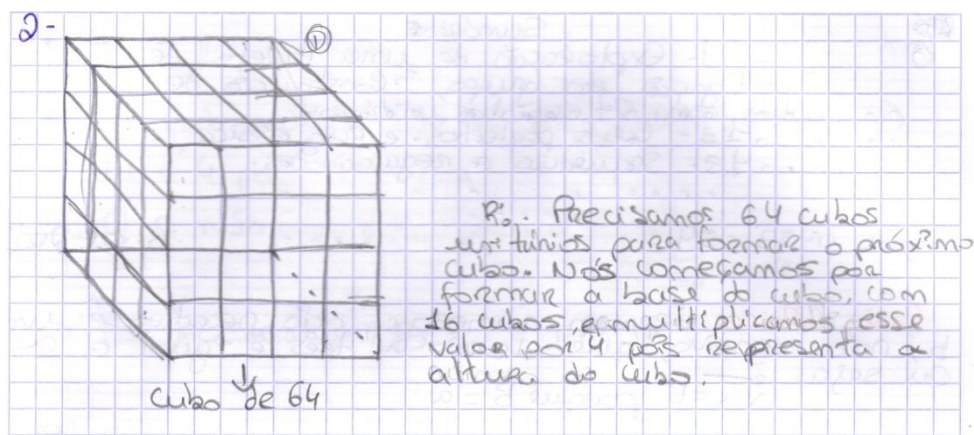 2-
①
R: Precisamos 64 cubos
unitários para formar o próximo
cubo. Nós começamos por
formar a base do cubo, com
16 cubos, e multiplicamos esse
valor por 4 pois representa a
altura do cubo.
cubo de 64